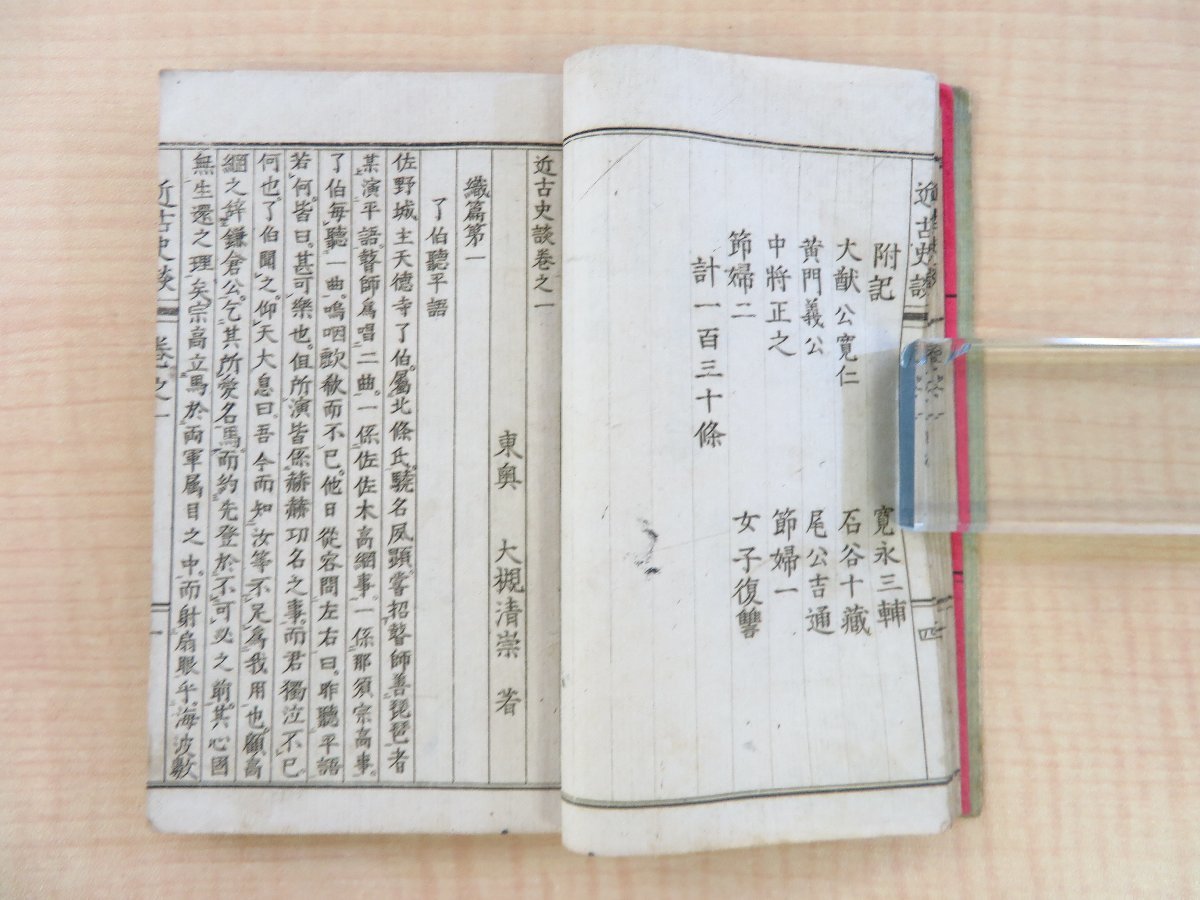 近古史談
四
附記
寛永三輔
大猷公寛仁
石谷十藏
黄門義公
尾公吉通
中將正之
節婦一
節婦二
女子復讐
計一百三十條
近古史談卷之一
東奥 大槻清崇 著
織篇第一
了伯聽平語
佐野城主天德寺了伯。屬北條氏。驍名夙顯。嘗招瞽師善琵琶者
某演平語。瞽師爲唱二曲。一係佐佐木高綱事。一係那須宗高事。
了伯每聽一曲。嗚咽歔欷而不已。他日從容問左右曰。昨聽平語
若何。皆曰。甚可樂也。但所演皆係赫赫功名之事。而君獨泣不已
何也。了伯聞之。仰天大息曰。吾今而知汝等不足爲我用也。顧高
綱之辭鎌倉公。乞其所愛名馬。而約先登於不可必之前。其心固
無生還之理矣。宗高立馬於兩軍屬目之中。而射扇眼乎。海波數
近古史談 卷之一 一